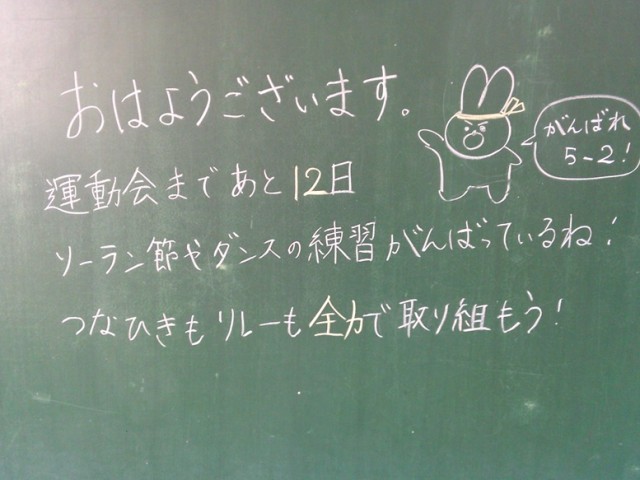 おはようございます。
がんばれ
5-2!
運動会まであと12日
ソーラン節やダンスの練習がんばっているね!
つなひきもリレーも全力で取り組もう!